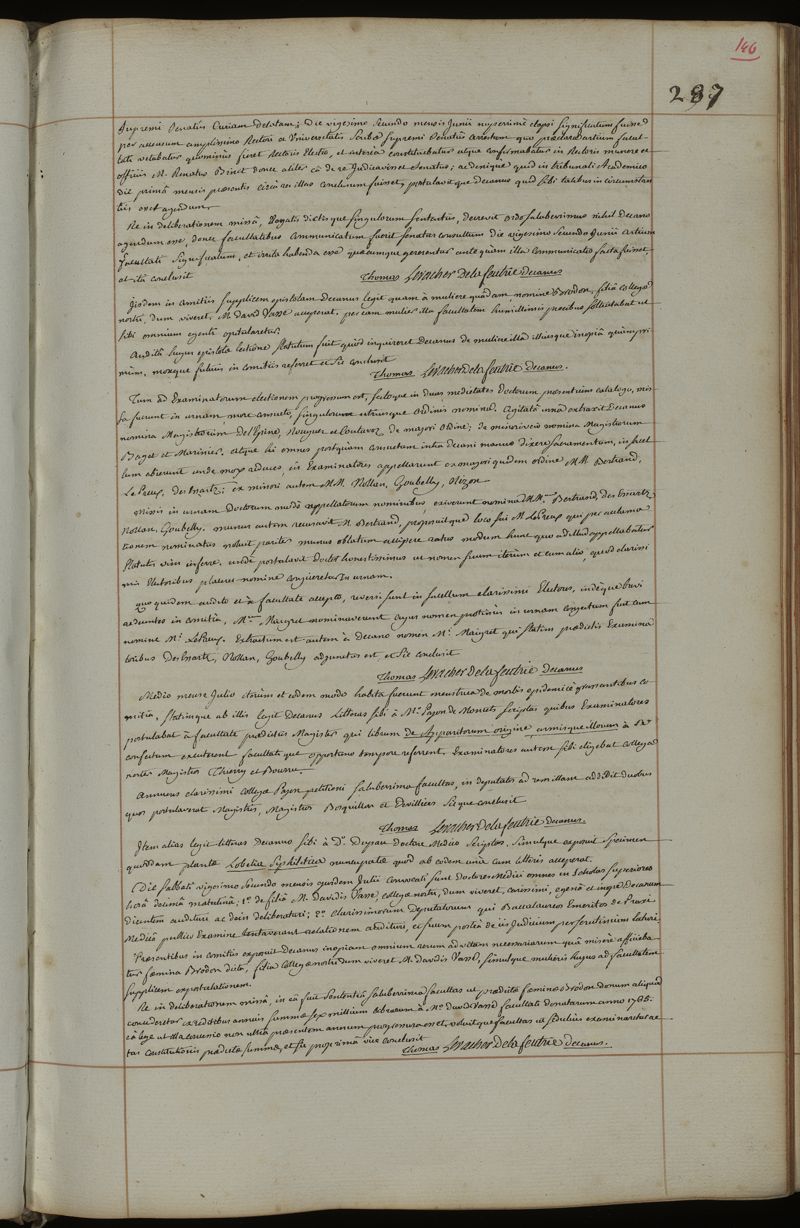 146
297
Supremi Senatûs Curiam delatam; Die vigesimo secundo mensis Junii nuperrimè elapsi significatum fuisse
per accensum amplissimo Rectori et Universitatis Scribæ Supremi Senatûs arrestum quo præclaræ artium facul-
tati vetabatur quominùs fieret Rectoris Electio, et interea constituebatur atque confirmabatur in Rectoris munere et
officiis M. Renatus Binet donec aliter eâ de re judicavisset Senatus; ac denique quid in tribunali Academico
die primâ mensis præsentis circà res illas conclusum fuisset, postulavitque Decanus quid sibi talibus in circumstan
tiis esset agendum.
Re in deliberationem missâ, rogatis dictisque singulorum sententiis, decrevit ordo saluberrimus nihil Decano
agendum esse, donec facultatibus communicatum fuerit senatus consultum die vigesimo secundo Junii artium
facultati significatum, et irrita habenda esse quæcumque gererentur antequam illa communicatio facta fuisset,
et ità conclusit
Thomas Levacher de la feutrie decanus
Iisdem in comitiis supplicem epistolam Decanus legit quam à muliere quâdam, nomine Brodon, filiâ collegæ
nostri, dum viveret, M. David Vasse acceperat. per eam mulier illa facultatem humillimis precibus sollicitabat ut
sibi omnium egenti opitularetur.
Auditâ hujus epistolæ lectione statutum fuit quòd inquireret Decanus de muliere illâ illiusque inopiâ quàm pri
mùm, moxque futuris in comitiis referret et sic conclusit
Thomas Levacher de la feutrie decanus.
Tum ad Examinatorum electionem progressum est, factoque in duas medietates Doctorum præsentium catalogo, mis
sa fuerunt in urnam more consueto, singulorum utriusque ordinis nomina. Agitatâ urnâ extraxit Decanus
nomina Magistrorum Delépine, Nouguez et Coutavoz de majori ordine; de minori verò nomina Magistrorum
Baget et Marinier. Atque hi omnes postquàm consuetum intrà Decani manus dixere sacramentum, in sacel
lum abierunt unde mox reduces, in Examinatores appellarunt ex majori quidem ordine MM. Bertrand,
Le Preux, desEssartz; ex minori autem MM. Nollan, Goubelly, Nizon
Missis in urnam Doctorum modò appellatorum nominibus, exiverunt nomina MM. Bertrand, des Essartz,
Nollan, Goubelly. munus autem recusavit M. Bertrand, proposuitque loco sui M. Le Preux qui per acclama
tionem nominatus noluit pariter munus oblatum accipere ratus modum hunc quo ad illud appellabatur
statutis vim inferre. undè postulavit Doctor honestissimus ut nomen suum iterùm et cum alio, quod clarissi
mis Electoribus placuerit nomine conjiceretur In urnam.
quo quidem audito et à facultate accepto, reversi sunt in sacellum clarissimi Electores, indèque brevi
redeuntes in comitia, M.um Maigret nominaverunt cujus nomen protinùs in urnam conjectum fuit cum
nomine M.i Le Preux. Extractum est autem à Decano nomen M.i Maigret qui statim prædictis Examina
toribus Des Essartz, Nollan, Goubelly adjunctus est et sic conclusit
Thomas Levacher De la feutrie Decanus
Medio mense Julio iterùm et eodem modo habita fuerunt menstrua de morbis epidemicè grassantibus co
mitia. Statimque ab illis legit Decanus litteras sibi à M.o Pajon de Moncets scriptas quibus Examinatores
postulabat à facultate prædictus Magister qui librum de Apparitorum origine, armisque illorum à se
confectum excuterent facultatique opportuno tempore referrent. Examinatores autem sibi eligebat collega
noster Magistros Thierry et Bourru.
Annuens clarissimi collegæ Pajon petitioni saluberrima facultas, in deputatos ad rem illam addidit duobus
quos postulaverat Magistris, Magistros Bosquillon et Dewilliers sicque conclusit
Thomas Levacher De la feutrie decanus.
Item alias legit litteras Decanus sibi à D.o Deysau doctore Medico scriptas, simulque exposuit specimen
quoddam plantæ Lobelia Syphilitica nuncupatæ quod ab eodem unà cum litteris acceperat.
Die sabbati vigesimo secundo mensis ejusdem Julii convocati sunt doctores Medici omnes in scholas superiores
horâ decimâ matutinâ; 1.o de filiâ M. Davidis Vasse collegæ nostri, dum viveret, carissimi, egenâ et inope Decanum
dicentem audituri ac dein deliberaturi; 2.o clarissimorum Deputatorum qui Baccalaureos Emeritos de Praxi
Medicâ publico Examine tentaverant relationem audituri, et suum posteà de iis Judicium per scrutinium laturi.
Præsentibus in comitiis exposuit Decanus inopiam omnium rerum ad vitam necessariarum quâ miserè afficieba
tur fœmina Brodon dicta, filia collegæ nostri dum viveret M. Davidis Vasse, simulque mulieris hujus ad facultatem
supplicem expostulationem.
Re in deliberationem missâ, in eâ fuit sententiâ saluberrima facultas ut prædictæ feminæ Brodon donum aliquod
concederetur ex reditibus annuis summæ sex millium librarum à M.o David Vasse facultati donatarum anno 1768:
eâ lege ut illa concessio non ultrà præsentem annum progressura esset, voluitque facultas ut sedulius examinaretur ac
tus constitutionis prædictæ summæ, et sic pro primâ vice conclusit
Thomas Levacher De la feutrie decanus.